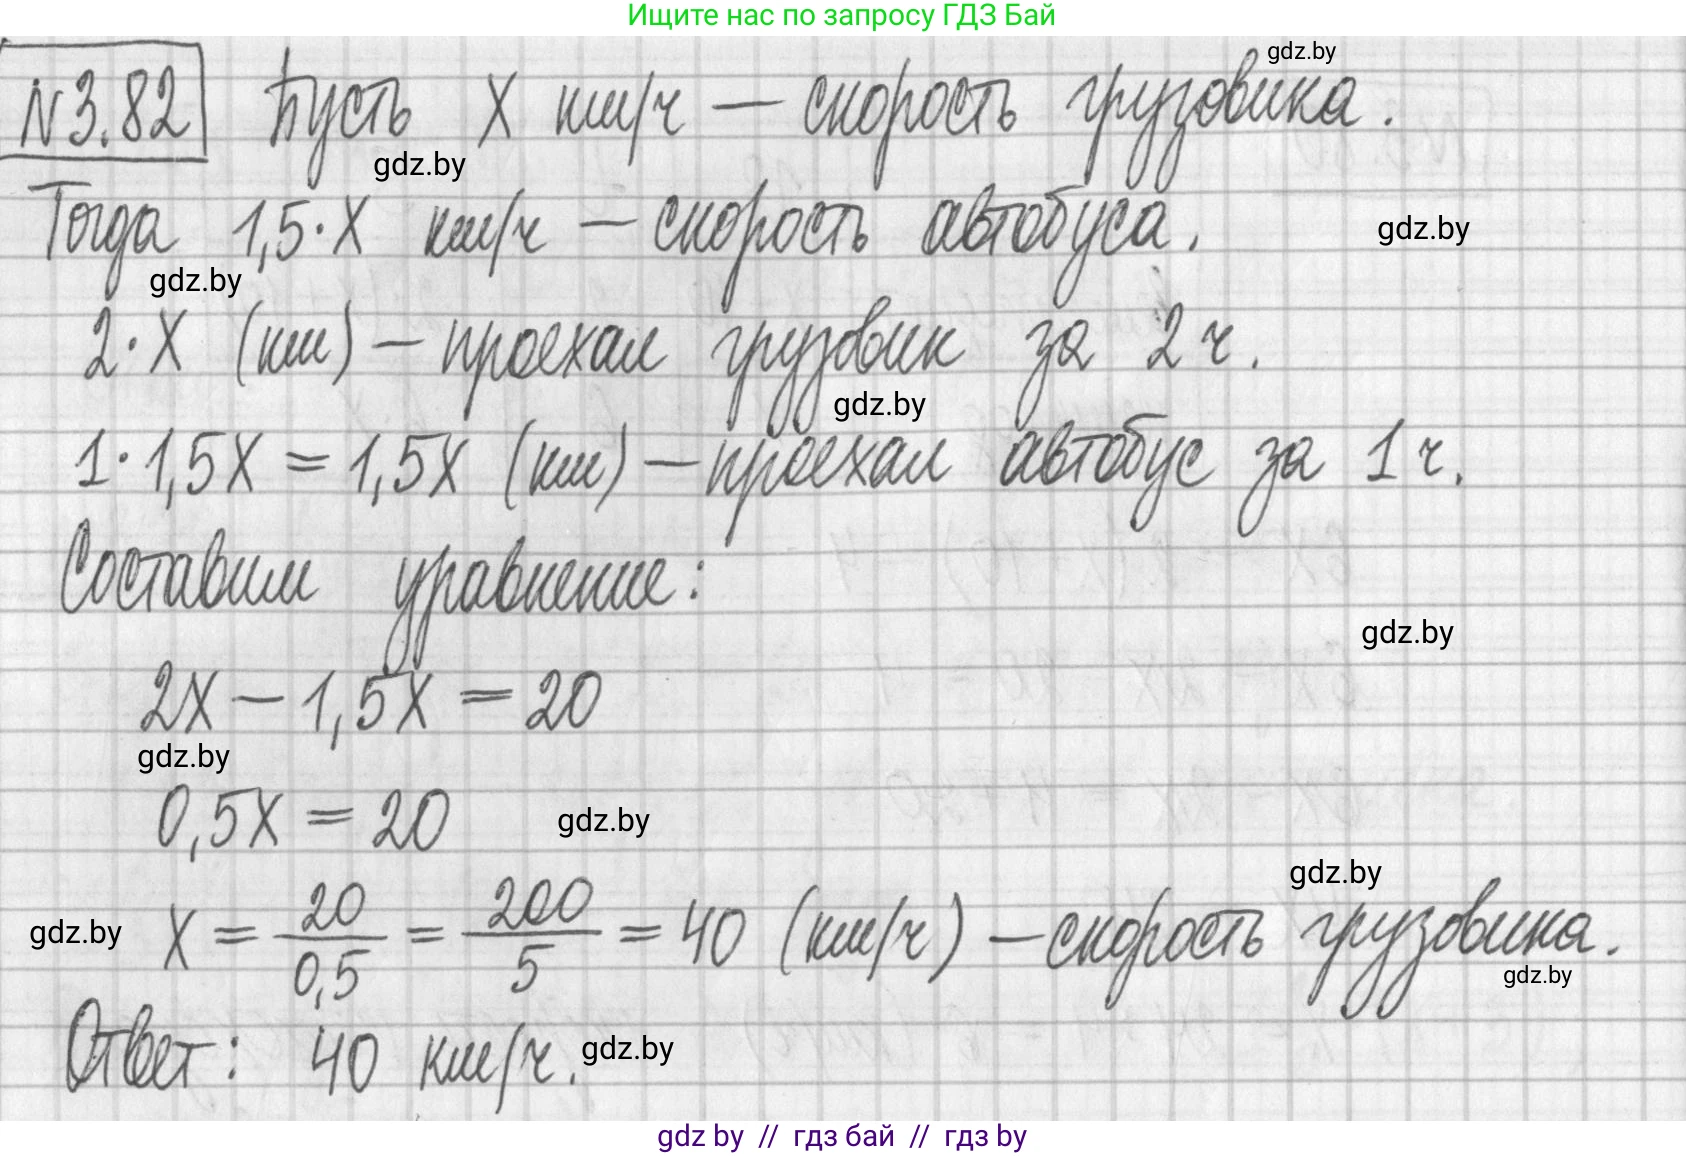 Ищите нас по запросу ГДЗ Бай
gdz.by
N3.82 Пусть x км/ч — скорость грузовика.
gdz.by
Тогда 1,5·x км/ч — скорость автобуса.
gdz.by
gdz.by
2·x (км) — проехал грузовик за 2 ч.
gdz.by
1·1,5x = 1,5x (км) — проехал автобус за 1 ч.
Составим уравнение:
gdz.by
2x − 1,5x = 20
gdz.by
0,5x = 20
gdz.by
gdz.by
gdz.by
x = 20/0,5 = 200/5 = 40 (км/ч) — скорость грузовика.
gdz.by
Ответ: 40 км/ч.
gdz.by
gdz by // гдз бай // гдз by